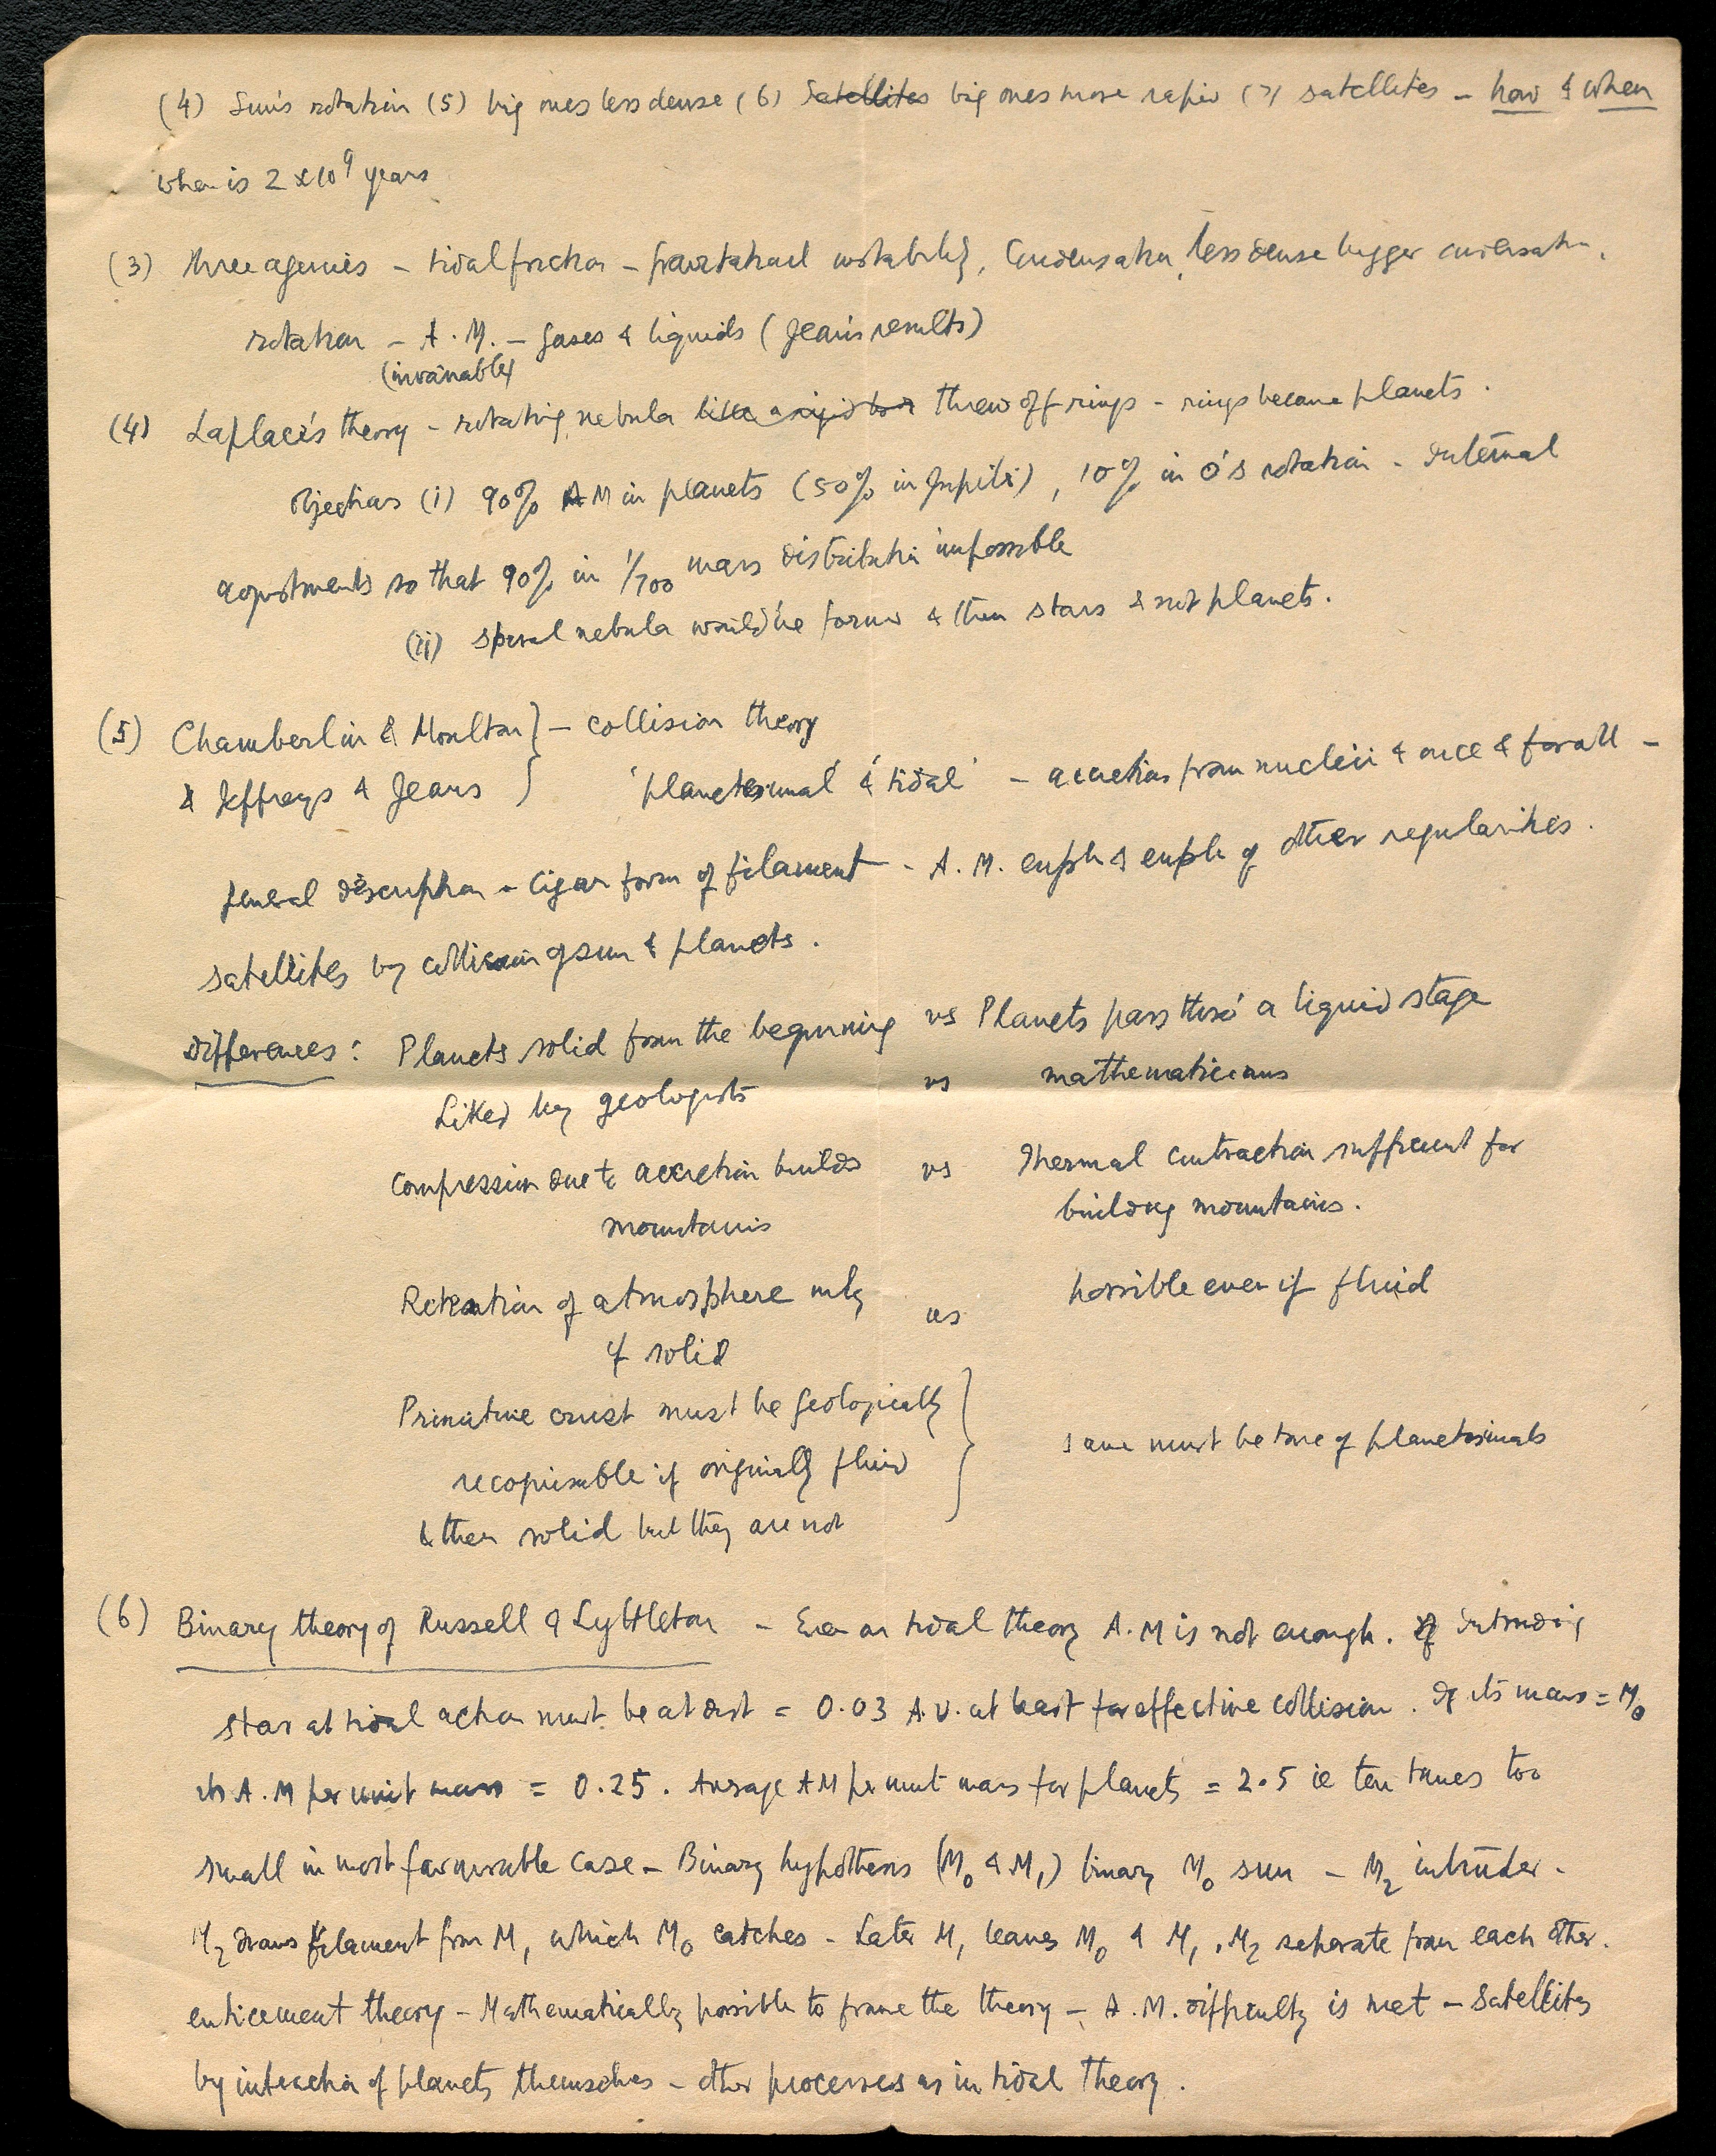 (4) Sun's rotation (5) big ones less dense (6) Satellites big ones more rapid (7) satellites – how & when
when is 2 x 10⁹ years
(3) Three agencies – tidal friction – gravitational instability, Condensation, less dense bigger condensation.
rotation – A.M. – gases & liquids (Jean's results)
(invariable)
(4) Laplace's theory – rotating nebula like a rigid body threw off rings – rings become planets.
Objections (i) 90% AM in planets (50% in Jupiter), 10% in O's rotation – Internal
adjustments so that 90% in 1/700 mass distribution impossible
(ii) spiral nebula would be formed & then stars & not planets.
(5) Chamberlin & Moulton } – collision theory
& Jeffreys & Jeans } 'planetesimal' & 'tidal' – accretion from nucleii & once & for all –
general description – cigar form of filament – A.M. expln & expln of other regularities.
satellites by collision of sun & planets.
Differences: Planets solid from the beginning vs Planets pass thro' a liquid stage
Liked by geologists vs mathematicians
Compression due to accretion builds vs Thermal contraction sufficient for
mountains building mountains.
Retention of atmosphere only vs possible even if fluid
if solid
Primitive crust must be geologically
recognisable if originally fluid } same must be true of planetesimals
& then solid but they are not
(6) Binary theory of Russell & Lyttleton – Even on tidal theory A.M is not enough. If intruding
star at tidal action must be at dist = 0.03 A.U. at least for effective collision. If its mass = M₀
its A.M per unit mass = 0.25. Average AM per unit mass for planets = 2.5 ie ten times too
small in most favourable case – Binary hypothesis (M₀ & M₁) binary M₀ sun – M₂ intruder –
M₂ draws filament from M₁ which M₀ catches – Later M₁ leaves M₀ & M₁, M₂ separate from each other.
enticement theory – Mathematically possible to frame the theory – A.M. difficulty is met – Satellites
by interaction of planets themselves – other processes as in tidal theory.